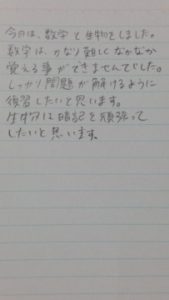 今日は、数学と生物をしました。
数学は、かなり難しくなかなか
覚える事ができませんでした。
しっかり問題が解けるように
復習したいと思います。
生物は暗記を頑張って
したいと思います。